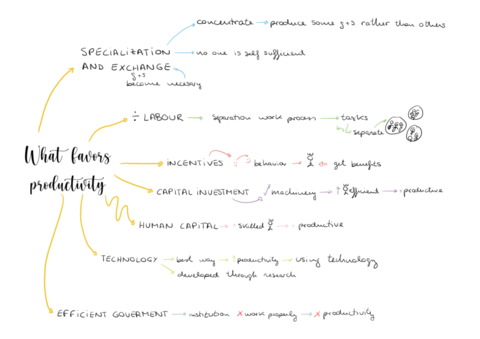 concentrate → produce some g+s rather than others
SPECIALIZATION → no one is self sufficient
AND EXCHANGE
g+s
become necesary
÷ LABOUR → separation work process → tasks
separate
What favors
productivity
INCENTIVES → behavior → get benefits
CAPITAL INVESTMENT machinery → ↑ efficient → productive
HUMAN CAPITAL → skilled → productive
TECHNOLOGY → best way → productivity → using technology
developed through research
EFFICIENT GOVERMENT → institution X work properly → X productivity